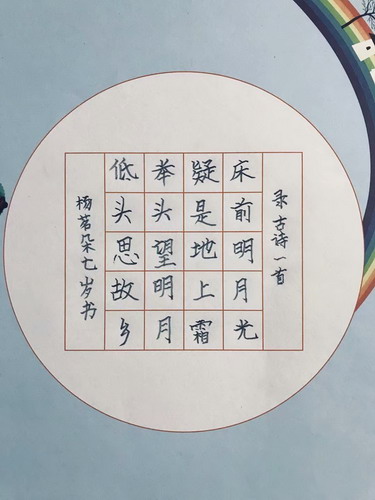 录古诗一首
床前明月光
疑是地上霜
举头望明月
低头思故乡
杨茗朵七岁书